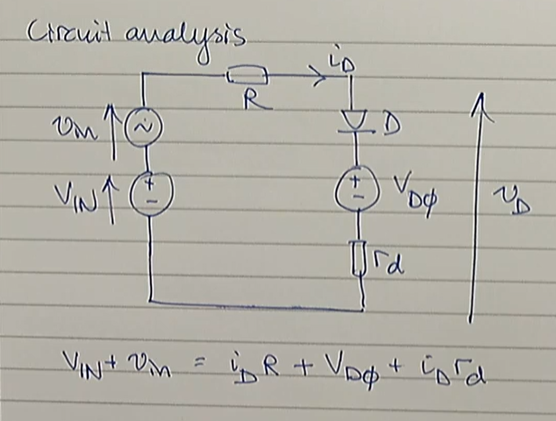 Circuit analysis
i_D
R
v_in
D
V_IN
+
-
+
-
V_Dϕ
v_D
r_d
V_IN + v_in = i_D R + V_Dϕ + i_D r_d